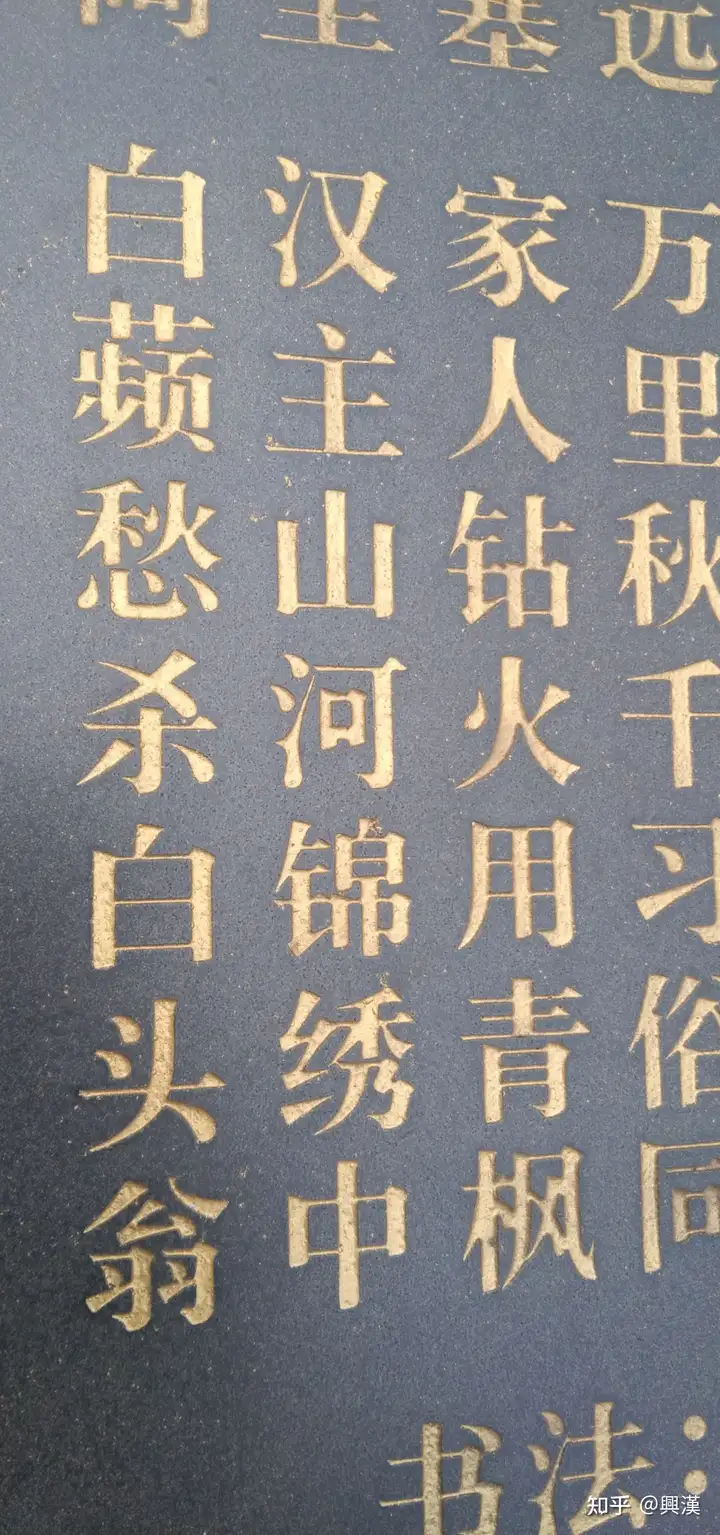 远 万里秋千习俗同
塞 家人钻火用青枫
汉主山河锦绣中
白蘋愁杀白头翁
书法：
知乎 @興漢